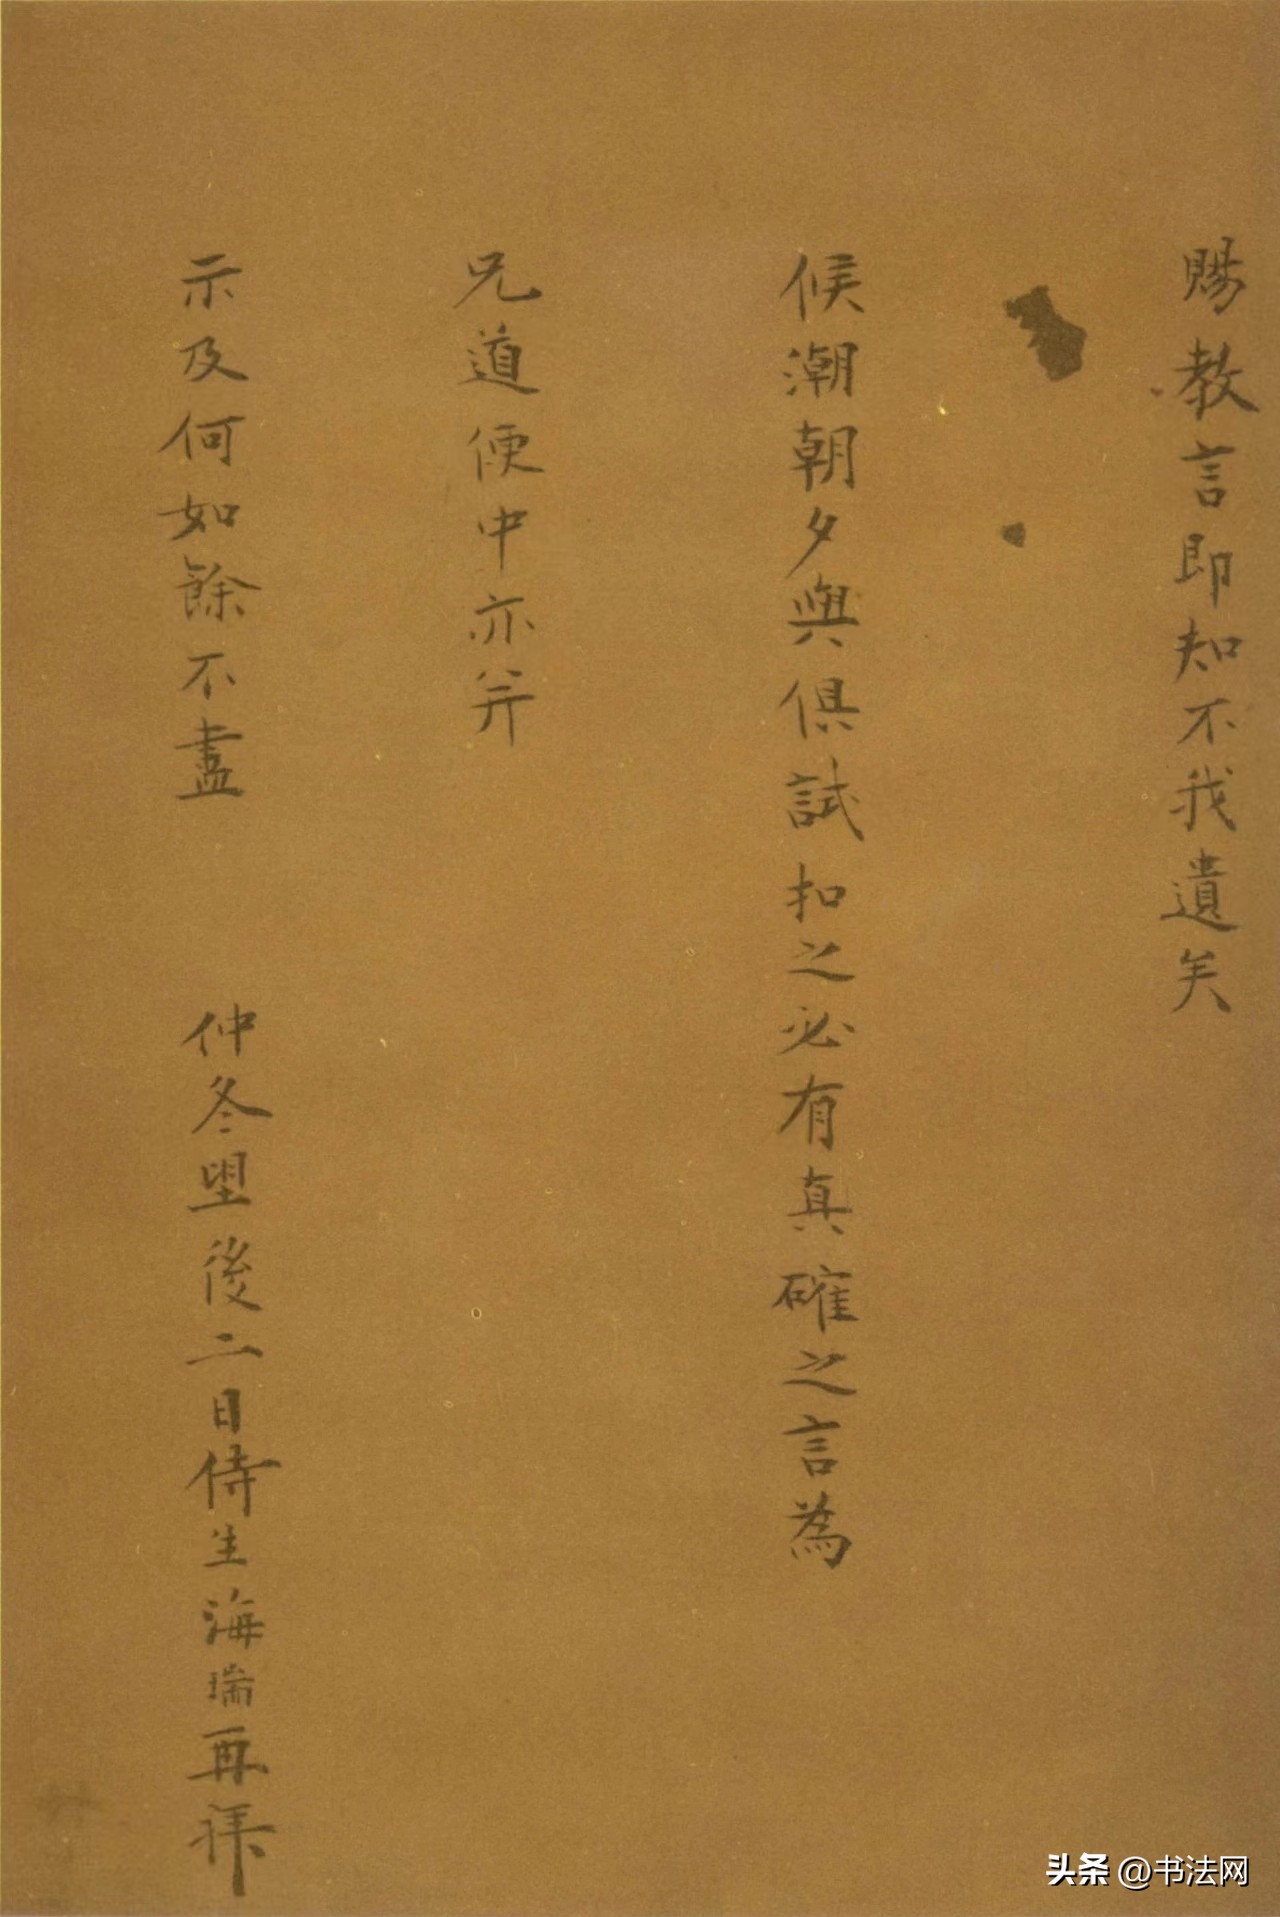 賜教言即知不我遺矣
候潮朝夕與俱試扣之必有真確之言為
兄道便中亦并
示及何如餘不盡
仲冬望後二日侍生海瑞再拜
头条 @书法网